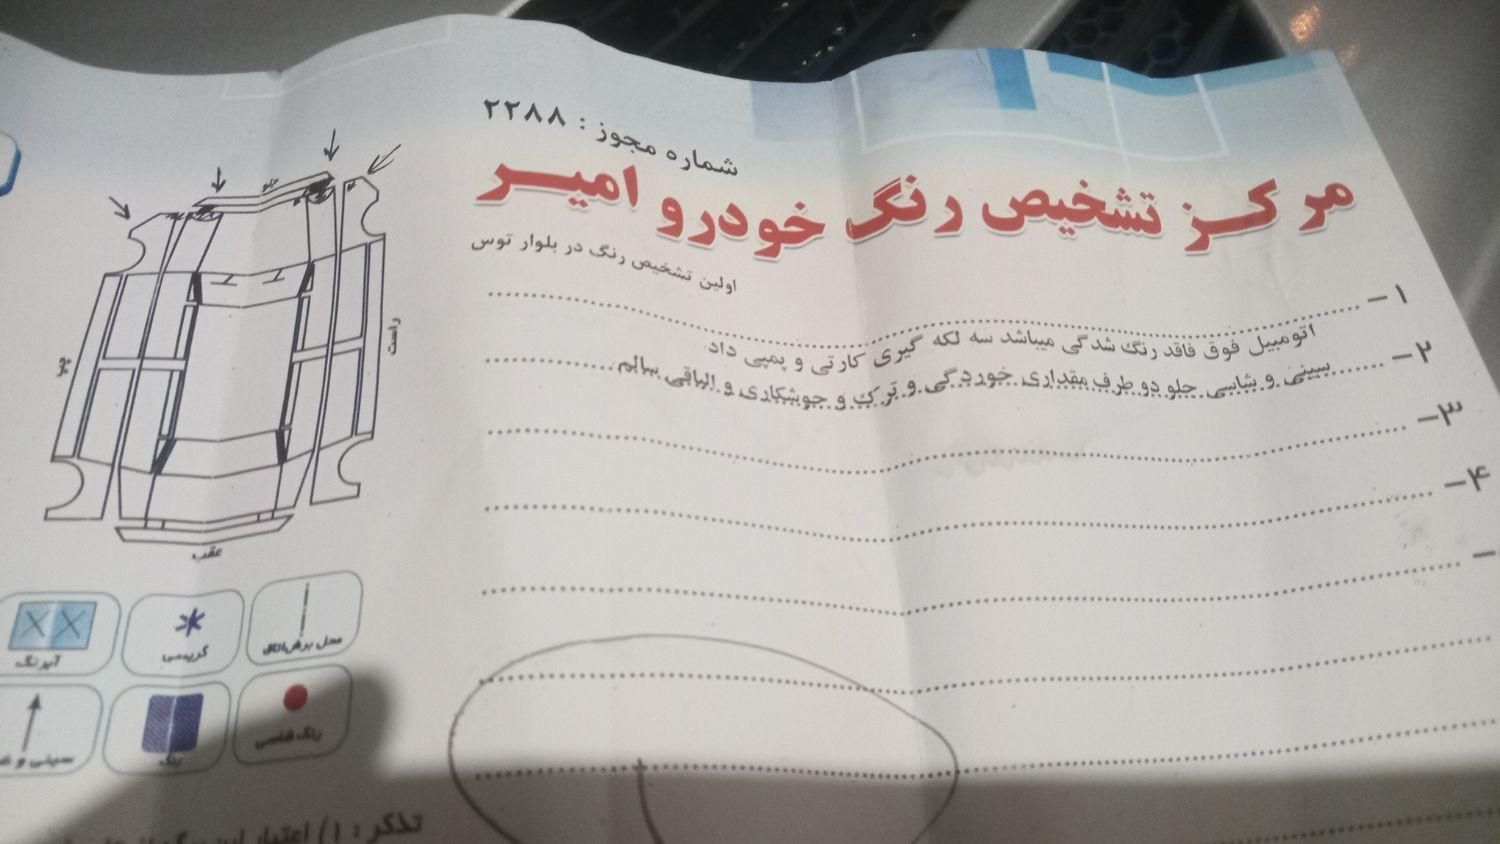 شماره مجوز : ۲۲۸۸
مرکز تشخیص رنگ خودرو امیر
اولین تشخیص رنگ در بلوار توس
۱-
اتومبیل فوق فاقد رنگ شدگی میباشد سه لکه گیری کارتی و پمپی داد
۲-
سینی و شاسی جلو دو طرف مقداری خوردگی و ترک و جوشکاری و الباقی سالم
۳-
۴-
-
جلو
راست
چپ
عقب
محل برش اتاق
گریسی
آبرنگ
رنگ شاسی
رنگ
سینی و
تذکر : ۱) اعتبار این